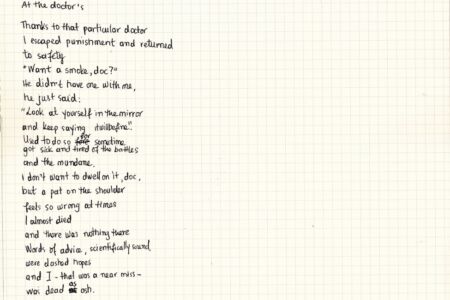 At the doctor's
Thanks to that particular doctor
I escaped punishment and returned
to safety
"Want a smoke, doc?"
He didn't have one with me,
he just said:
"Look at yourself in the mirror
and keep saying itwillbefine".
Used to do so for sometime.
got sick and tired of the battles
and the mundane.
I don't want to dwell on it, doc,
but a pat on the shoulder
feels so wrong at times
I almost died
and there was nothing there
Words of advice, scientifically sound,
were dashed hopes
and I - that was a near miss -
was dead as ash.